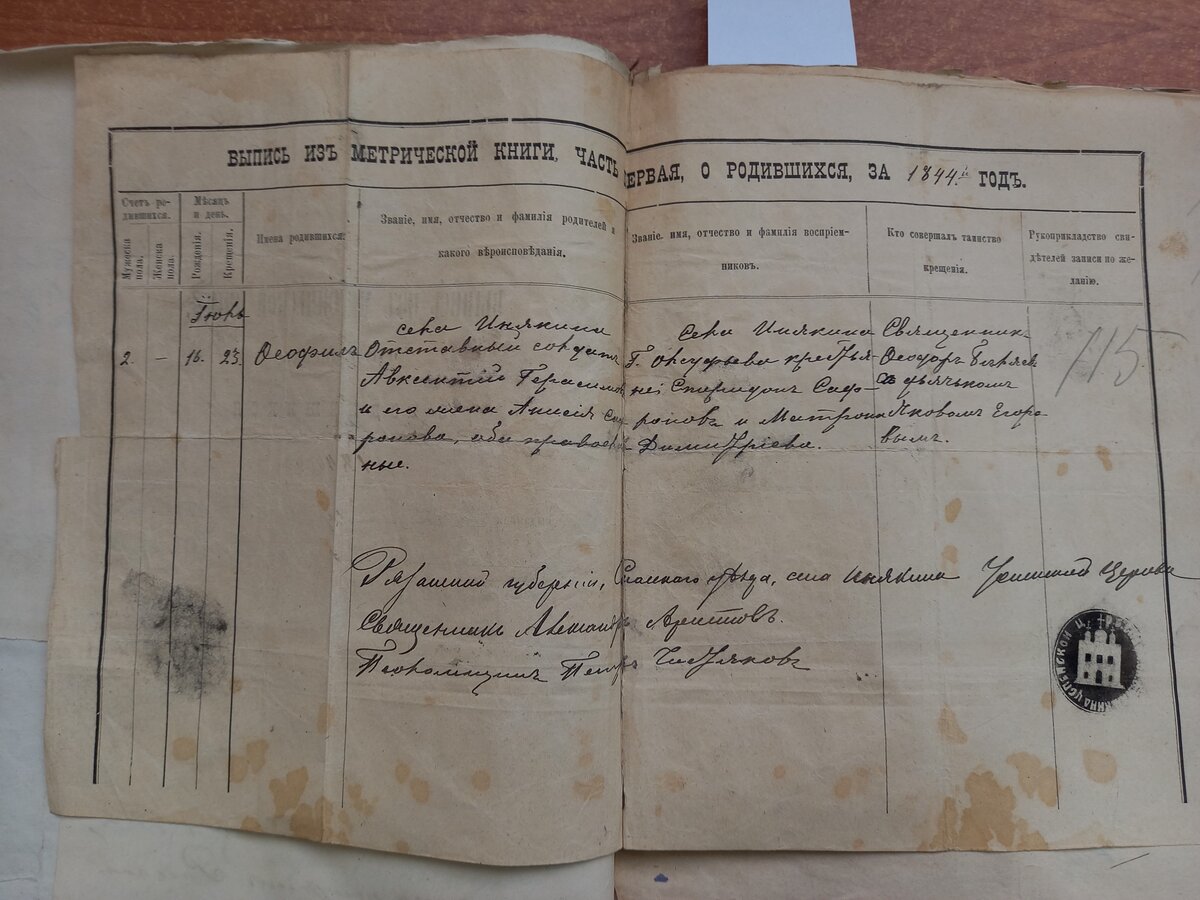 ВЫПИСЬ ИЗЪ МЕТРИЧЕСКОЙ КНИГИ, ЧАСТЬ ПЕРВАЯ, О РОДИВШИХСЯ, ЗА 1844.й ГОДЪ.
Счетъ родившихся.
Мужеска пола.
Женска пола.
Мѣсяцъ и день.
Рожденія.
Крещенія.
Имена родившихся.
Званіе, имя, отчество и фамилія родителей и
какого вѣроисповѣданія.
Званіе, имя, отчество и фамилія воспріем-
никовъ.
Кто совершалъ таинство
крещенія.
Рукоприкладство сви-
дѣтелей записи по же-
ланію.
2. – 16. 23. Ѳеофилъ
села Инякина
Отставный солдатъ
Авксентій Герасимов
и его жена Анисія Са
ронова, оба правос
ные.
села Инякина
Г. крестья-
не: Спиридонъ Саф-
роновъ и Матрона
Димитріева.
Священник
Ѳеодоръ
съ дьячькомъ
Яковомъ Егоро
вымъ.
115
Рязанской губерніи, Спасского уѣзда, села Инякина Успенской Церкви
Священникъ Александръ Аристовъ.
Псаломщикъ Петръ